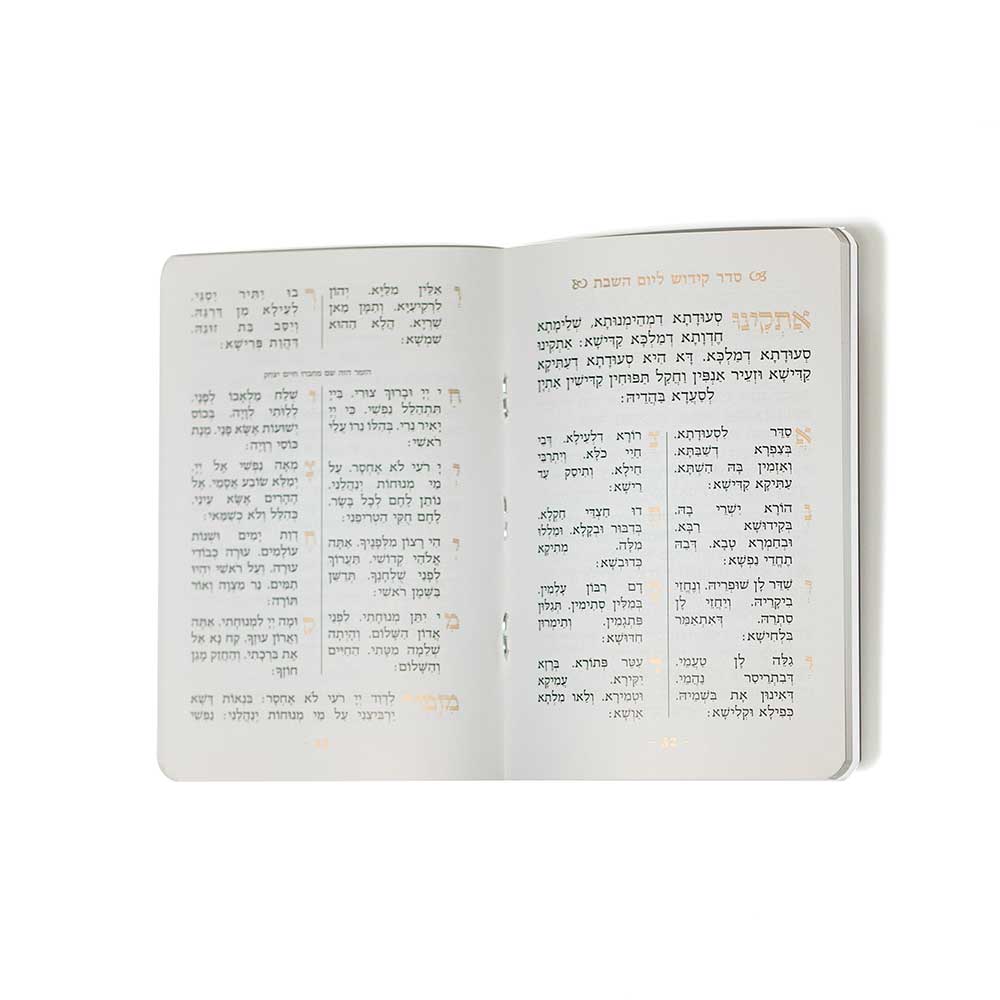 סדר קידוש ליום השבת
אַתְקִינוּ סְעוּדָתָא דִמְהֵימְנוּתָא, שְׁלֵימָתָא
חֶדְוָתָא דְמַלְכָּא קַדִּישָׁא: אַתְקִינוּ
סְעוּדָתָא דְמַלְכָּא. דָּא הִיא סְעוּדָתָא דְעַתִּיקָא
קַדִּישָׁא וּזְעֵיר אַנְפִּין וַחֲקַל תַּפּוּחִין קַדִּישִׁין אַתְיָן
לְסַעֲדָא בַּהֲדֵיהּ:
אֲסַדֵּר לִסְעוּדָתָא.
בְּצַפְרָא דְשַׁבְּתָא.
וְאַזְמִין בָּהּ הַשְׁתָּא.
עַתִּיקָא קַדִּישָׁא:
צְרוֹרָא דִלְעֵילָא. דְּבֵי
חַיֵּי כֹלָּא. וְיִתְרַבֵּי
חֵילָא. וְתִיסַק עַד
רֵישָׁא:
נְהוֹרָא יִשְׁרֵי בָהּ.
בְּקִידּוּשָׁא רַבָּא.
וּבְחַמְרָא טָבָא. דְּבֵהּ
תֶּחֱדֵי נַפְשָׁא:
חֲדוּ חַצְדֵי חַקְלָא.
בְּדִבּוּר וּבְקָלָא. וּמַלְּלוּ
מִלָּה. מְתִיקָא
כְּדוּבְשָׁא:
יְשַׁדֵּר לָן שׁוּפְרֵיהּ. וְנֶחֱזֵי
בִיקָרֵיהּ. וְיַחֲזֵי לָן
סִתְרֵהּ. דְּאִתְאַמַּר
בִּלְחִישָׁא:
קֳדָם רִבּוֹן עָלְמִין.
בְּמִלִּין סְתִימִין. תְּגַלּוּן
פִּתְגָמִין. וְתֵימְרוּן
חִדּוּשָׁא:
יְגַלֵּה לָן טַעֲמֵי.
דְּבִתְרֵיסַר נַהֲמֵי.
דְּאִינוּן אָת בִּשְׁמֵיהּ.
כְּפִילָא וּקְלִישָׁא:
לְעַטֵּר פְּתוֹרָא. בְּרָזָא
יַקִּירָא. עֲמִיקָא
וּטְמִירָא. וְלָאו מִלְּתָא
אַוְשָׁא:
- 32 -
וְאִלֵּין מִלַּיָּא. יְהוֹן
לִרְקִיעַיָּא. וְתַמָּן מָאן
שַׁרְיָא. הֲלָא הַהוּא
שִׁמְשָׁא:
רְבוּ יַתִּיר יִסְגֵּי.
לְעֵילָּא מִן דַּרְגֵּהּ.
וְיִסַּב בַּת זוּגֵהּ.
דַּהֲוַת פְּרִישָׁא:
הזמר הזה שם מחברו חיים יצחק
חַי יְיָ וּבָרוּךְ צוּרִי. בַּייָ
תִּתְהַלֵּל נַפְשִׁי. כִּי יְיָ
יָאִיר נֵרִי. בְּהִלּוֹ נֵרוֹ עֲלֵי
רֹאשִׁי:
יְיָ רֹעִי לֹא אֶחְסָר. עַל
מֵי מְנוּחוֹת יְנַהֲלֵנִי.
נוֹתֵן לֶחֶם לְכָל בָּשָׂר.
לֶחֶם חֻקִּי הַטְרִיפֵנִי:
יְהִי רָצוֹן מִלְּפָנֶיךָ. אַתָּה
אֱלֹהַי קְדוֹשִׁי. תַּעֲרוֹךְ
לְפָנַי שֻׁלְחָנֶךָ. תְּדַשֵּׁן
בַּשֶּׁמֶן רֹאשִׁי:
מִי יִתֵּן מְנוּחָתִי. לִפְנֵי
אֲדוֹן הַשָּׁלוֹם. וְהָיְתָה
שְׁלֵמָה מִטָּתִי. הַחַיִּים
וְהַשָּׁלוֹם:
יִשְׁלַח מַלְאָכוֹ לְפָנַי.
לְלַוּוֹתִי לְוָיָה. בְּכוֹס
יְשׁוּעוֹת אֶשָּׂא פָנַי. מְנָת
כּוֹסִי רְוָיָה:
צָמְאָה נַפְשִׁי אֶל יְיָ.
יְמַלֵּא שׂוֹבַע אֲסָמַי. אֶל
הֶהָרִים אֶשָּׂא עֵינָי.
כְּהִלֵּל וְלֹא כְשַׁמַּאי:
חֶדְוַת יָמִים וּשְׁנוֹת
עוֹלָמִים. עוּרָה כְבוֹדִי
עוּרָה. וְעַל רֹאשִׁי יִהְיוּ
תַמִּים. נֵר מִצְוָה וְאוֹר
תּוֹרָה:
קוּמָה יְיָ לִמְנוּחָתִי. אַתָּה
וַאֲרוֹן עוּזֶּךָ. קַח נָא אֵל
אֶת בִּרְכָתִי. וְהַחֲזֵק מָגֵן
חוֹזֶךָ:
מִזְמוֹר לְדָוִד יְיָ רֹעִי לֹא אֶחְסָר: בִּנְאוֹת דֶּשֶׁא
יַרְבִּיצֵנִי עַל מֵי מְנוּחוֹת יְנַהֲלֵנִי: נַפְשִׁי
- 33 -